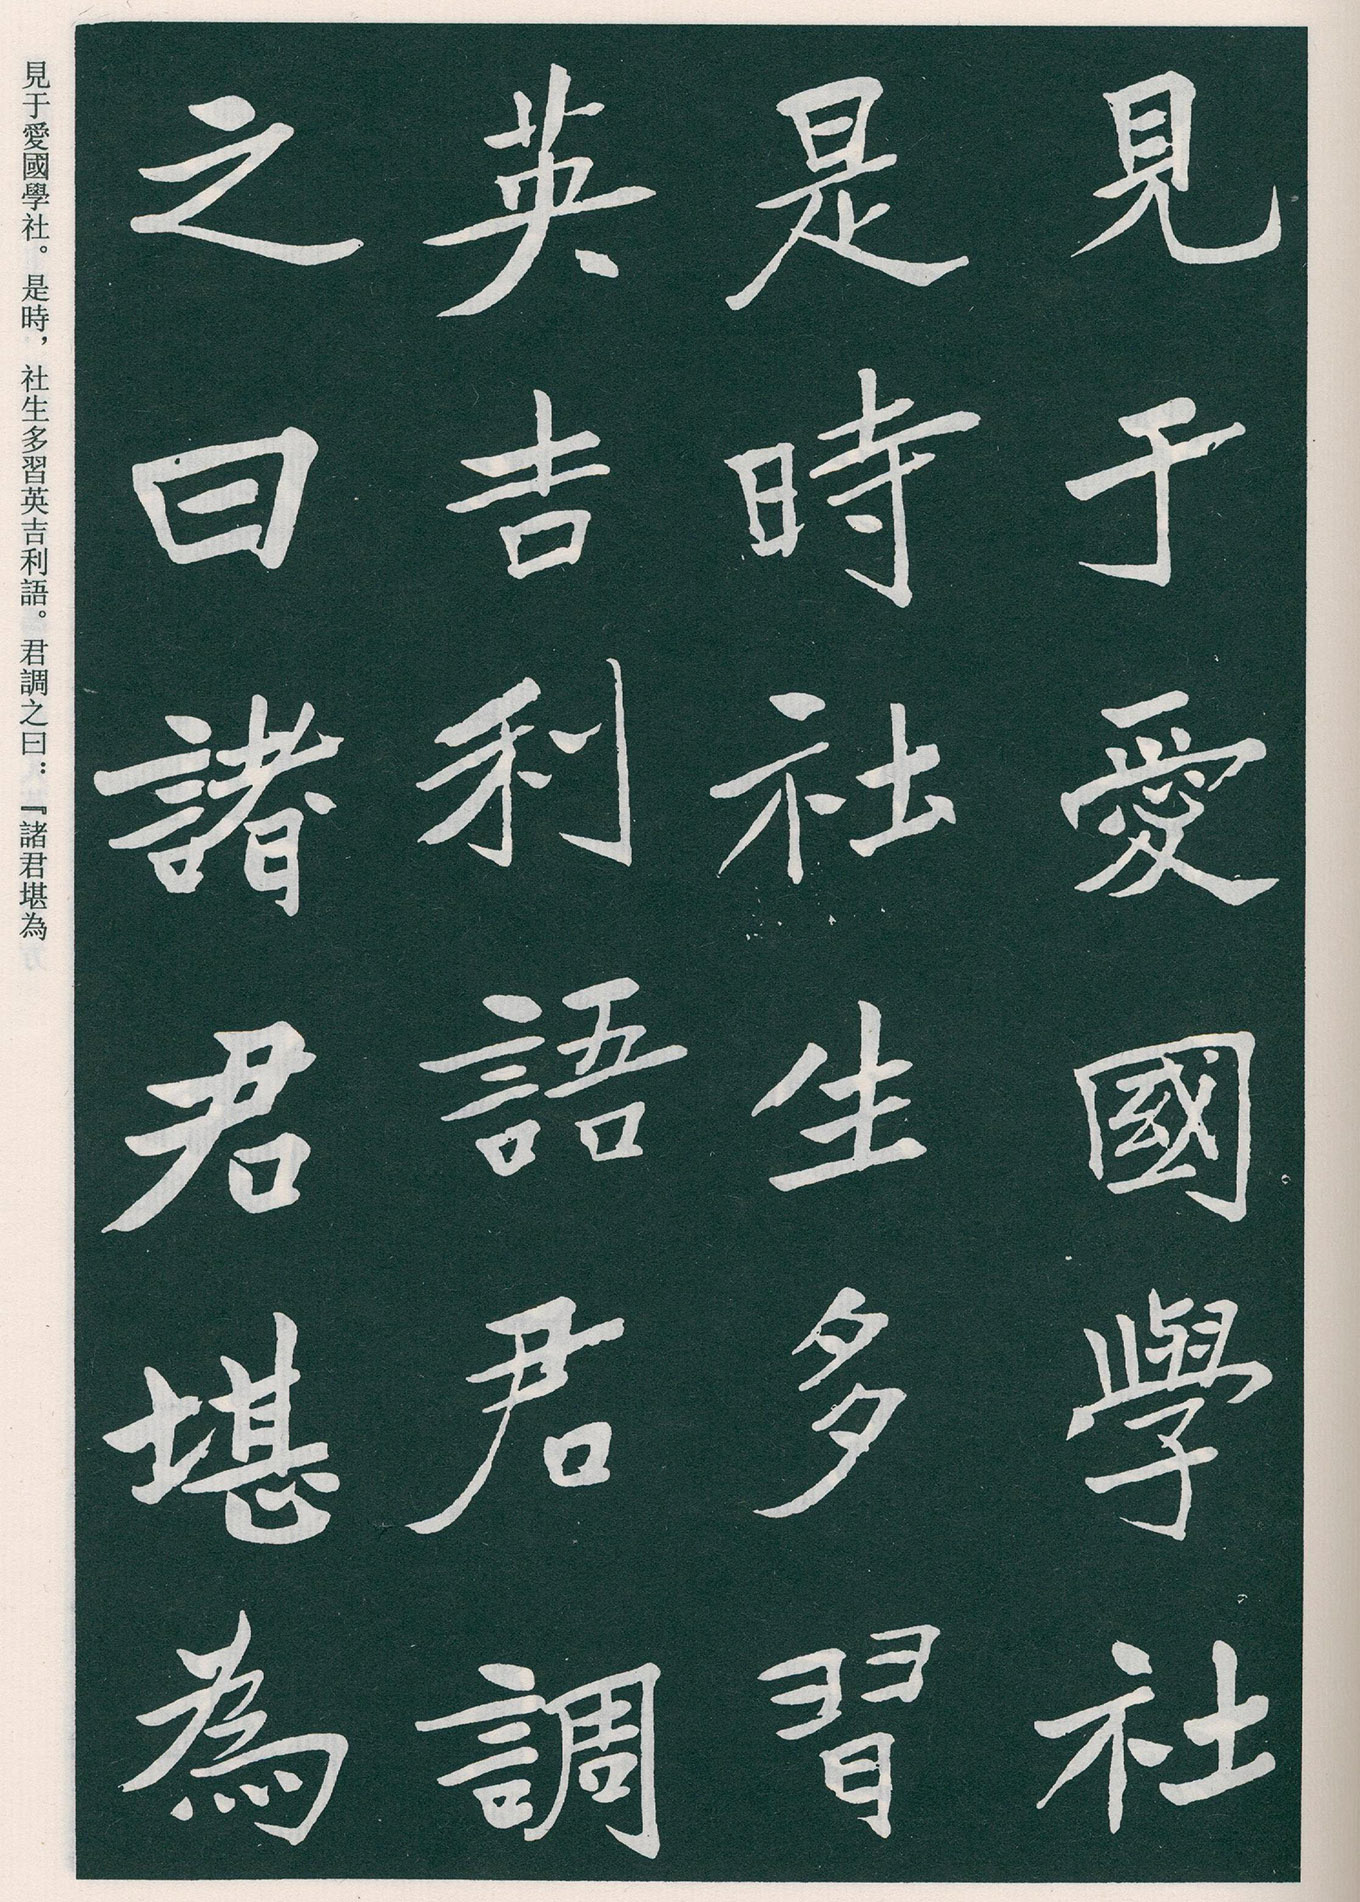 見于愛國學社
是時社生多習
英吉利語君調
之曰諸君堪為
見于愛國學社。是時，社生多習英吉利語。君調之曰：『諸君堪為